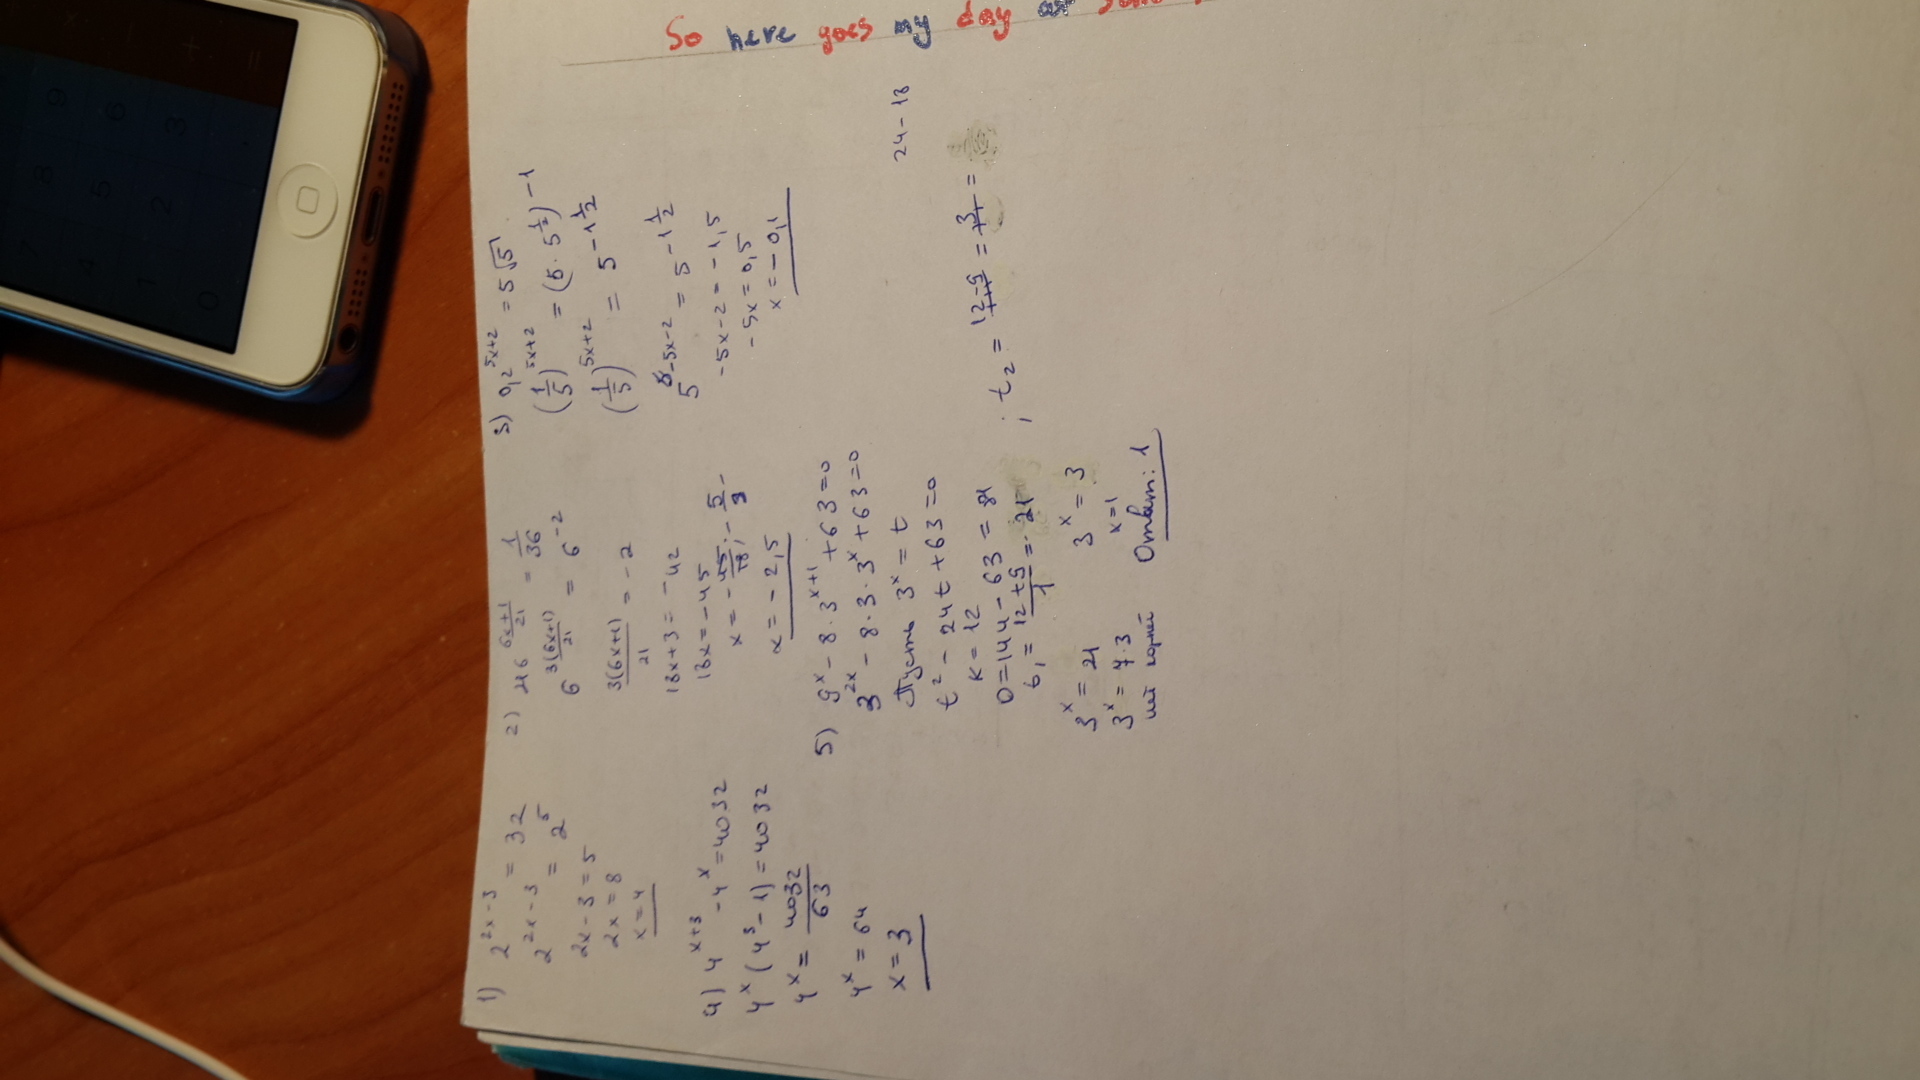 So here goes my day at
1)
2^{2x-3} = 32
2^{2x-3} = 2^5
2x-3=5
2x=8
x=4
2)
216^{\frac{6x+1}{21}} = \frac{1}{36}
6^{\frac{3(6x+1)}{21}} = 6^{-2}
\frac{3(6x+1)}{21} = -2
18x+3=-42
18x=-45
x=-\frac{45}{18};-\frac{5}{9}-
x=-2,5
3) 0,2^{5x+2} = 5√5
(\frac{1}{5})^{5x+2} = (5·5^{\frac{1}{2}})-1
(\frac{1}{5})^{5x+2} = 5^{-1\frac{1}{2}}
5^{-5x-2} = 5^{-1\frac{1}{2}}
-5x-2=-1,5
-5x=0,5
x=-0,1
4) 4^{x+3} - 4^x = 4032
4^x (4^3-1) = 4032
4^x = \frac{4032}{63}
4^x = 64
x=3
5)
9^x - 8·3^{x+1} + 63=0
3^{2x} - 8·3·3^x + 63=0
Пусть 3^x = t
t^2 - 24t + 63 = 0
24-18
K = 12
D=144-63 = 81
t_1 = \frac{12+9}{1} = 21 ; t_2 = 12-9 = 3 =
3^x = 21
3^x = 7·3
нет корней
3^x = 3
x=1
Ответ: 1
9
6
3
3
5
2
4
1
0